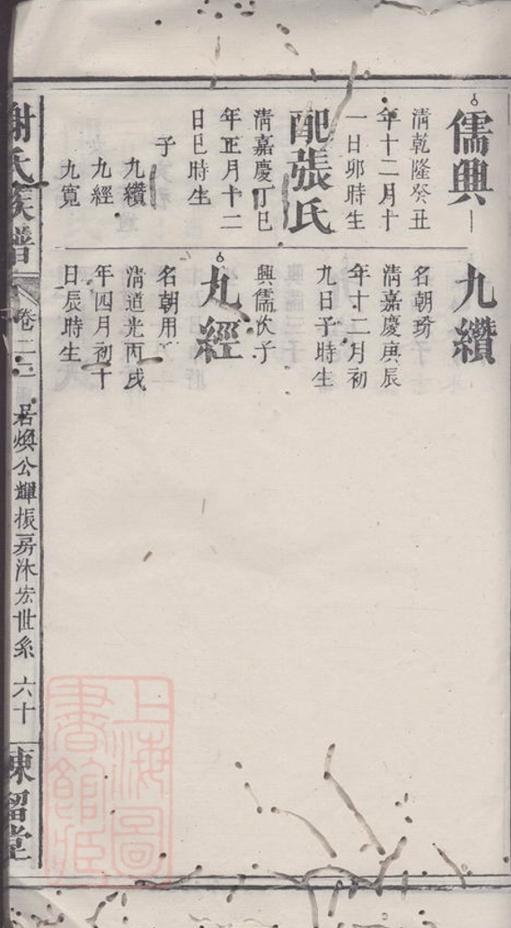 儒興
清乾隆癸丑
年十二月十
一日卯時生
配張氏
清嘉慶丁巳
年正月十二
日巳時生
子
九纘
九經
九寬
九纘
名朝
清嘉慶庚辰
年十二月初
九日子時生
興儒次子
九經
名朝用
清道光丙戌
年四月初十
日辰時生
謝氏族譜
卷二二
君煥公輝振房沐宏世系 六十
陳留堂
上海圖
書館藏